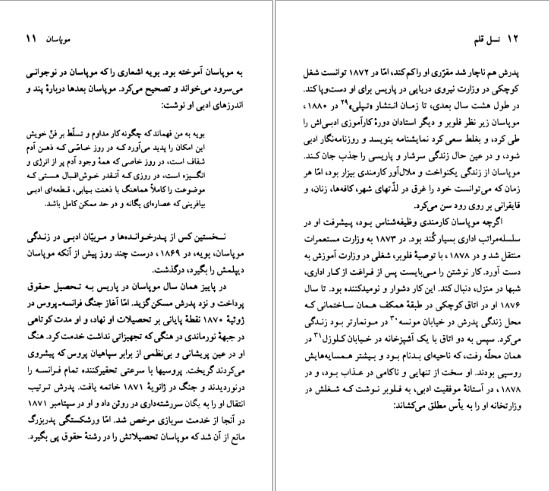 موپاسان   ۱۱
به موپاسان آموخته بود. بویه اشعاری را که موپاسان در نوجوانی
می‌سرود می‌خواند و تصحیح می‌کرد. موپاسان بعدها دربارهٔ پند و
اندرزهای ادبی او نوشت:
بویه به من فهماند که چگونه کار مداوم و تسلّط بر فنّ خویش
این امکان را پدید می‌آورد که در روز خاصّی که ذهن آدم
شفاف است، در روز خاصی که همهٔ وجود آدم پر از انرژی و
انگیزه است، در روزی که آنقدر خوش‌اقبال هستی که
موضوعت را کاملاً هماهنگ با ذهنت بیابی، قطعه‌ای ادبی
بیافرینی که عصاره‌ای یگانه و در حد ممکن کامل باشد.
نخستین کس از پدرخوانده‌ها و مربیّان ادبی در زندگی
موپاسان، بویه، در ۱۸۶۹، درست چند روز پیش از آنکه موپاسان
دیپلمش را بگیرد، درگذشت.
در پاییز همان سال موپاسان در پاریس به تحصیل حقوق
پرداخت و نزد پدرش مسکن گزید. امّا آغاز جنگ فرانسه-پروس در
ژوئیهٔ ۱۸۷۰ نقطهٔ پایانی بر تحصیلات او نهاد، و او مدت کوتاهی
در جبههٔ نورماندی در هنگی که تجهیزاتی نداشت خدمت کرد. هنگ
او در عین پریشانی و بی‌نظمی از برابر سپاهیان پروس که پیشروی
می‌کردند گریخت. پروسیها با سرعتی تحقیرکننده تمام فرانسه را
درنوردیدند و جنگ در ژانویهٔ ۱۸۷۱ خاتمه یافت. پدرش ترتیب
انتقال او را به یگان سررشته‌داری در روئن داد و او در سپتامبر ۱۸۷۱
در آنجا از خدمت سربازی مرخص شد. امّا ورشکستگی پدربزرگ
مانع از آن شد که موپاسان تحصیلاتش را در رشتهٔ حقوق پی بگیرد.
۱۲   نسل قلم
پدرش هم ناچار شد مقرّری او را کم کند، امّا در ۱۸۷۲ توانست شغل
کوچکی در وزارت نیروی دریایی در پاریس برای او دست‌وپا کند.
در طول هشت سال بعدی، تا زمان انتشار «تپلی»۲۹ در ۱۸۸۰،
موپاسان زیر نظر فلوبر و دیگر استادان دورهٔ کارآموزی ادبی‌اش را
طی کرد، و بلغط سعی کرد نمایشنامه بنویسد و روزنامه‌نگار ادبی
شود، و در عین حال زندگی سرشار و پاریسی را جذب جان کند.
موپاسان از زندگی یکنواخت و ملال‌آور کارمندی بیزار بود، امّا هر
زمان که می‌توانست خود را غرق در لذّتهای شهر، کافه‌ها، زنان، و
قایقرانی بر روی رود سن می‌کرد.
اگرچه موپاسان کارمندی وظیفه‌شناس بود، پیشرفت او در
سلسله‌مراتب اداری بسیار کُند بود. در ۱۸۷۳ به وزارت مستعمرات
منتقل شد و در ۱۸۷۸، با توصیهٔ فلوبر، شغلی در وزارت آموزش به
دست آورد. کار نوشتن را می‌بایست پس از فراغت از کار اداری،
شبها در منزل، دنبال کند. این کار دشوار و نومیدکننده بود. تا سال
۱۸۷۶ او در اتاق کوچکی در طبقهٔ همکف همان ساختمانی که
محل زندگی پدرش در خیابان مونسه۳۰ در مونمارتر بود زندگی
می‌کرد. سپس به دو اتاق با یک آشپزخانه در خیابان کلوزل۳۱ در
همان محلّه رفت، که ناحیه‌ای بدنام بود و بیشتر همسایه‌هایش
روسپی بودند. او سخت از تنهایی و ناکامی در عذاب بود، و در
۱۸۷۸، در آستانهٔ موفقیت ادبی، به فلوبر نوشت که شغلش در
وزارتخانه او را به یأس مطلق می‌کشاند: